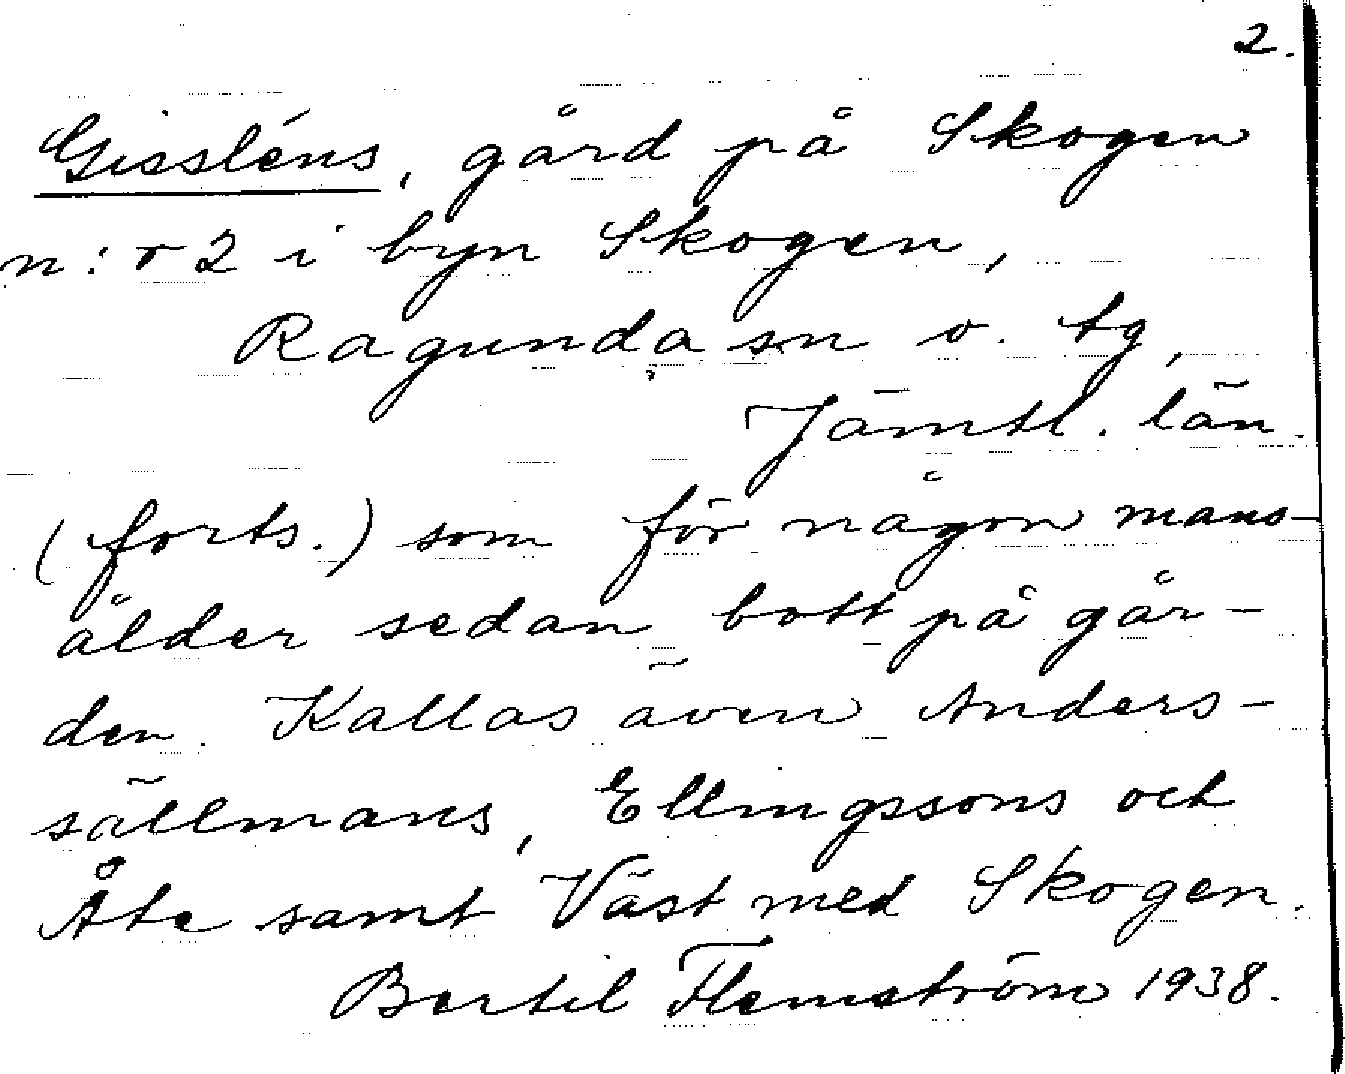 2.
Gissléns, gård på Skogen
n:r 2 i byn Skogen,
Ragunda sn o. tg,
Jämtl. län.
(forts.) som för någon mans-
ålder sedan bott på går-
den. Kallas även Anders-
sällmans, Ellingssons och
Åte samt Väst med Skogen.
Bertil Flemström 1938.